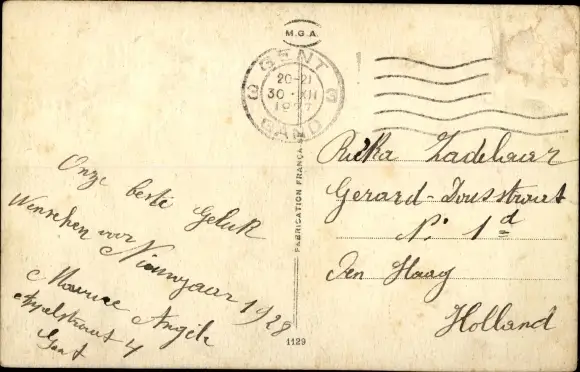 M.G.A.
GENT
3 3
20-21
30·XII
1927
GAND
FABRICATION FRANÇAISE
Onze beste Geluk
Wenschen voor
Nieuwjaar 1928
Maurice Angèle
4
Gent
Gerard-Dousstraat
N° 1d
Den Haag
Holland
1129